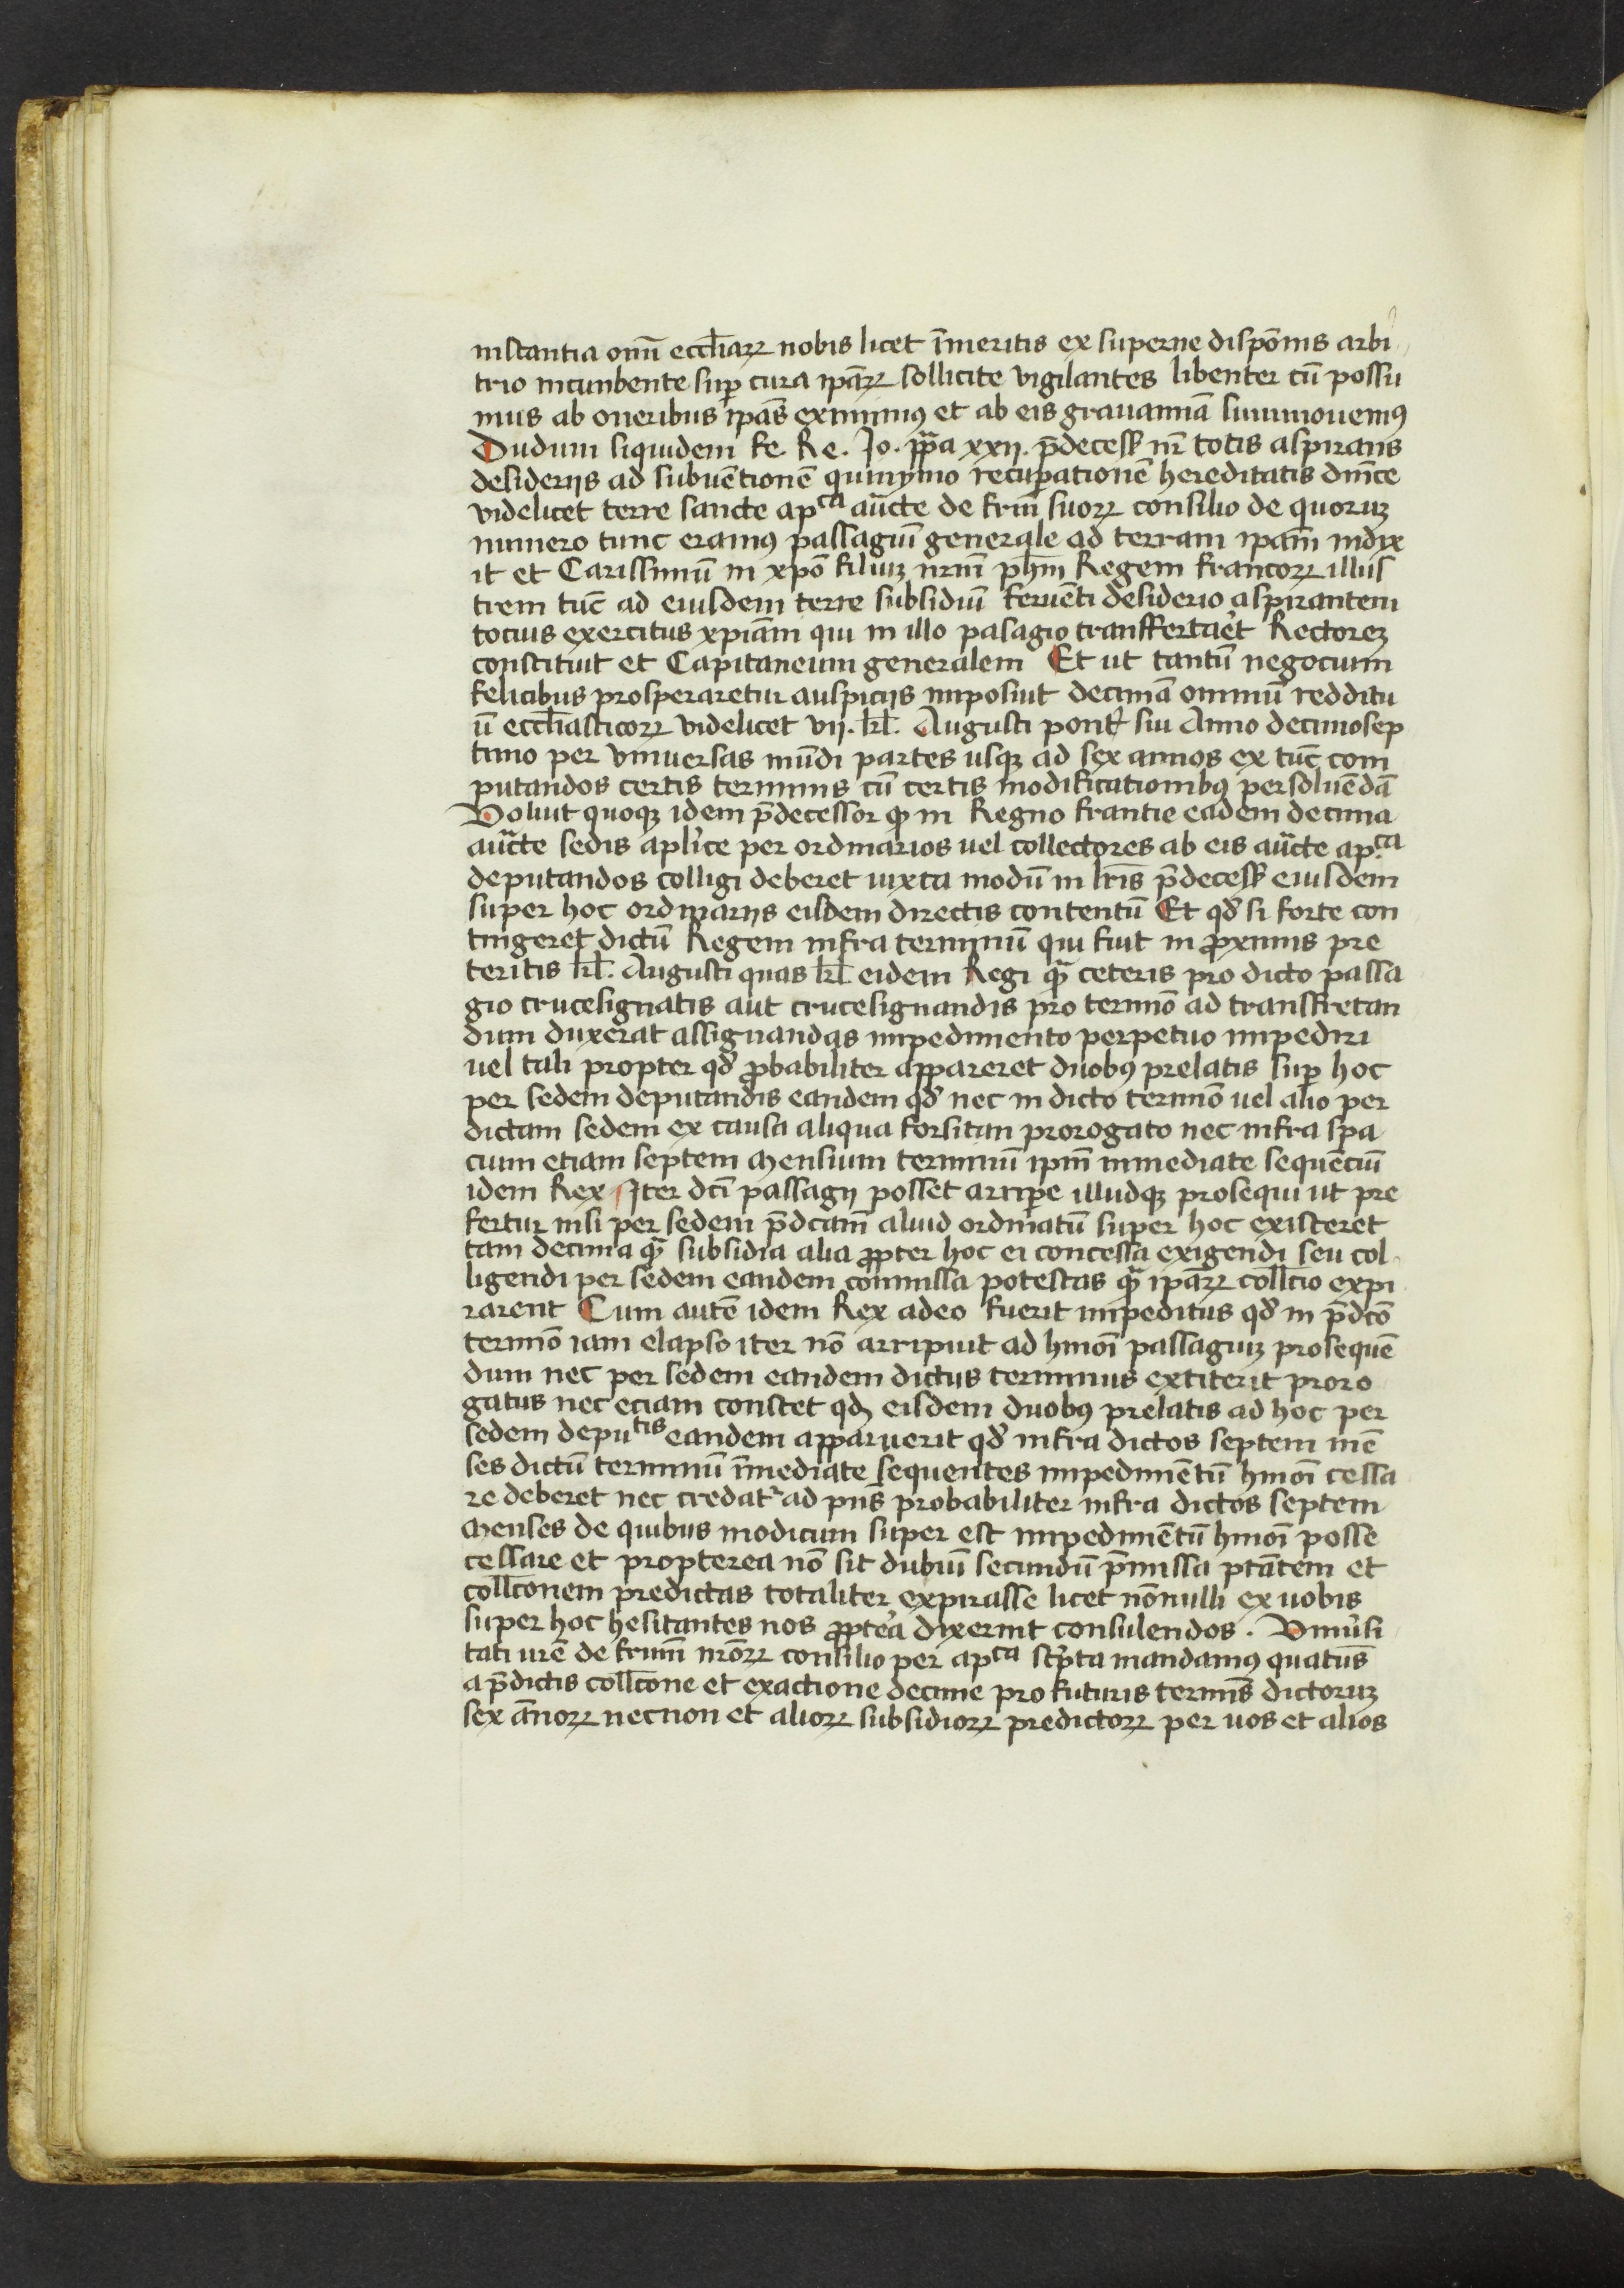 instantia om̄ ecc̄liaꝝ nobis licet īmeritis ex superne dispōnis arbi
trio incunbente suꝑ cura ip̄aꝝ sollicite vigilantes libenter cū possu
mus ab oneribus ip̄as eximimꝰ et ab eis grauaminā summouemꝰ
Dudum siquidem fe. Re. Jo. pp̄a xxij. p̄decess nr̄ totis aspirans
desiderijs ad subuētionē quinymo recuꝑationē hereditatis dn̄ice
videlicet terre sancte apᶜᵃ auc̄te de fr̄m suoꝝ consilio de quoruꝫ
numero tunc eramꝰ passagiū generale ad terram ipam̄ indix
it et Carissimū in xp̄o filiuꝫ nrm̄ ph̄m Regem francoꝝ illus
trem tūc ad eiusdem terre subsidiū feruēti desiderio aspirantem
tocius exercitus xp̄iam̄ qui in illo pasagio transfertaēt Rectoreꝫ
constituit et Capitaneum generalem Et ut tantū negocium
felicibus prosperaretur auspicijs imposiut decimā omniū redditu
ū ecc̄liasticoꝝ videlicet vij. kl̄. Augusti pont̄ sui Anno decimosep
timo per vniuersas mūdi partes usqꝫ ad sex annos ex tūc com
putandos certis terminis cū certis modificationibꝰ persoluēdā
Voluit quoqꝫ idem p̄decessor ꝙ in Regno francie eadem decima
auc̄te sedis apl̄ice per ordinarios uel collectores ab eis auc̄te ap.ᶜᵃ
deputandos colligi deberet iuxta modū in lr̄is p̄decess eiusdem
super hoc ordinarijs eisdem directis contentū Et qd̄ si forte con
tingeret dictū Regem infra terminū qui fuit in ꝓximis pre
teritis kl̄. Augusti quas kl̄ eidem Regi qᷓ ceteris pro dicto passa
gio crucesignatis aut crucesignandis pro termīo ad transfretan
dum duxerat assignandas impedimento perpetuo impediri
uel tali propter qd̄ ꝓbabiliter appareret duobꝰ prelatis suꝑ hoc
per sedem deputandis eandem qd̄ nec in dicto termīo uel alio per
dictam sedem ex causa aliqua forsitan prorogato nec infra spa
cium etiam septem mensium terminū ipm̄ inmediate sequēciū
idem Rex Iter dc̄i passagij posset arriꝑe illudqꝫ prosequi ut pre
fertur nisi per sedem p̄dcam̄ aliud ordinatū super hoc existeret
tam decima qᷓ subsidia alia ꝓpter hoc ei concessa exigendi seu col
ligendi per sedem eandem conmissa potestas qᷓ ip̄aꝝ coll̄cio expi
rarent Cum autē idem Rex adeo fuerit impeditus qd̄ in p̄dcō
termīo iam elapso iter nō arripuit ad hmōi passagiuꝫ prosequē
dum nec per sedem eandem dictus terminus extiterit proro
gatus nec eciam constet qd̄ eisdem duobꝰ prelatis ad hoc per
sedem deputis eandem apparuerit qd̄ infra dictos septem mē
ses dictū terminū īmediate sequentes impedimētū hmōi cessa
re deberet nec credatʳ ad pn̄s probabiliter infra dictos septem
menses de quibus modicum super est impedimētū hmōi posse
cessare et propterea nō sit dubiū secundū p̄missa ptātem et
coll̄conem predictas totaliter expirasse licet nōnulli ex uobis
super hoc hesitantes nos ꝓpteā dixerint consulendos. Vniūsi
tati ur̄e de frum̄ nr̄oꝝ consilio per apᶜᵃ scp̄ta mandamꝰ quatus̄
a p̄dictis coll̄cone et exactione decime pro futuris termīs dictoruꝫ
sex ānoꝝ necnon et alioꝝ subsidioꝝ predictoꝝ per uos et alios